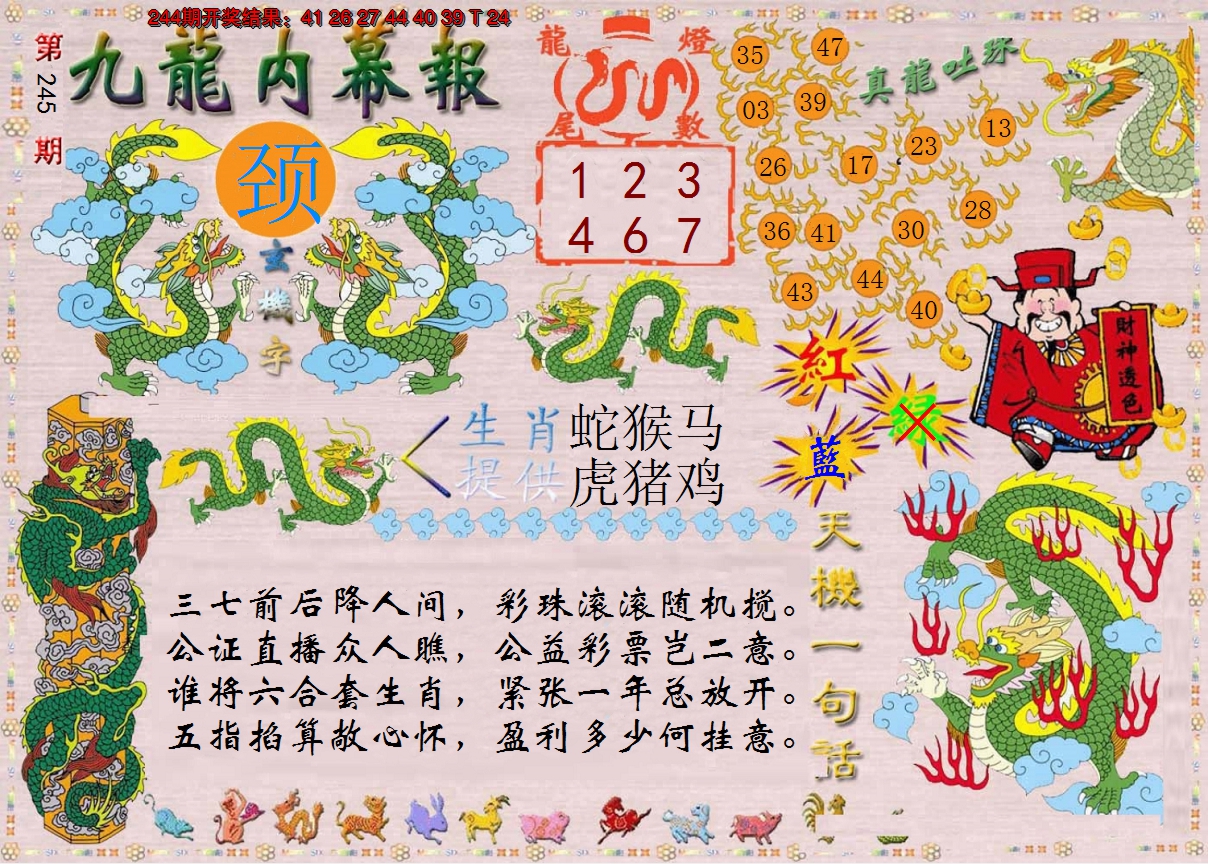 244期开奖结果：41 26 27 44 40 39 T 24
第
245
期
九龍内幕報
龍燈
尾數
1 2 3
4 6 7
真龍吐珠
35
47
03
39
23
13
26
17
28
36
41
30
43
44
40
颈
玄機字
财神透色
紅
绿
藍
生肖提供
蛇猴马
虎猪鸡
天機一句话
三七前后降人间，彩珠滚滚随机搅。
公证直播众人瞧，公益彩票岂二意。
谁将六合套生肖，紧张一年总放开。
五指掐算敞心怀，盈利多少何挂意。